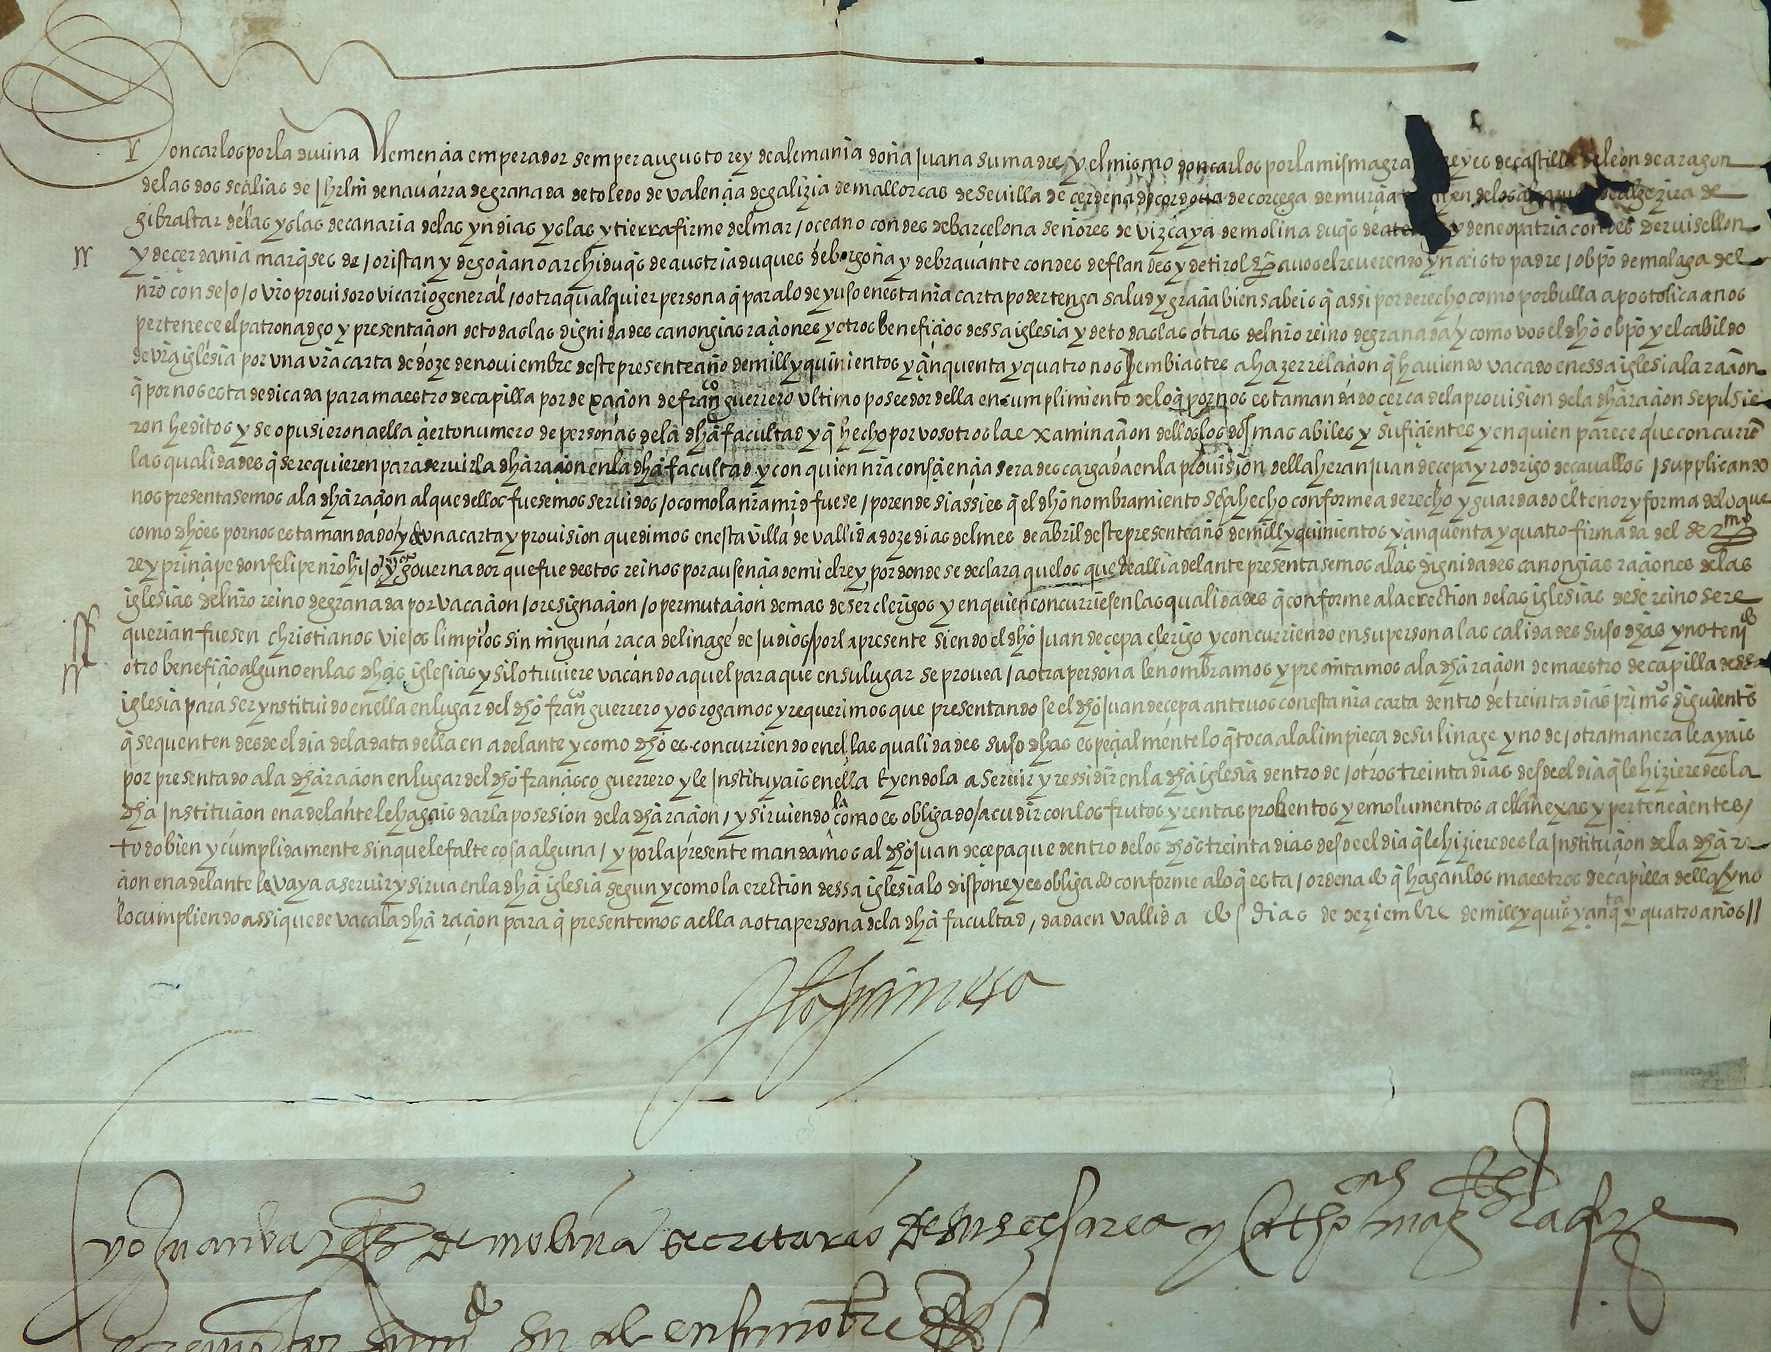 Don carlos por la divina clemençia emperador semper augusto rey de alemania doña juana su madre y el mismo don carlos por la misma gra reyes de castilla de leon de aragon
de las dos seçilias de jhrlm de navarra de granada de toledo de valençia de galizia de mallorcas de sevilla de cerdeña de cordova de corcega de murçia de jaen de los algarves de algezira de
gibraltar de las yslas de canaria de las yndias yslas y tierra firme del mar / oceano condes de barçelona señores de vizcaya de molina duqs de atenas y de neopatria condes de ruisellon
y de çerdania marqses de / oristan y de goçiano archiduqs de austria duques de borgoña y de bravante condes de flandes y de tirol &c a vos el reverendo yn cristo padre / obpo de malaga del
nro consejo / o vro provisor o vicario general / o otra qualquier persona q para lo de yuso en esta nra carta poder tenga salud y graçia bien sabeis q assi por derecho como por bulla apostolica a nos
perteneçe el patronadgo y presentaçion de todas las dignidades canongias raçiones y otros benefiçios dessa iglesia y de todas las otras del nro reino de granada / y como vos el dho obpo y el cabildo
de vra iglesia por una vra carta de doze de noviembre deste presente año de mill y quinientos y çinquenta y quatro nos embiastes a hazer relaçion q haviendo vacado en essa iglesia la raçion
q por nos esta dedicada para maestro de capilla por dexaçion de franco guerrero ultimo poseedor della en cumplimiento de lo q por nos esta mandado çerca de la provision de la dha raçion se pusie
ron heditos y se opusieron a ella çierto numero de personas de la dha facultad y q hecho por vosotros la examinaçion dellos los dos mas abiles y sufiçientes y en quien pareçe que concurren
las qualidades q se requieren para servir la dha raçion en la dha facultad y con quien nra consçiençia sera descargada en la provision della heran juan de çepa y rodrigo de cavallos / supplicando
nos presentasemos a la dha raçion al que dellos fuesemos servidos / o como la nra md fuese / por ende si assi es q el dho nombramiento se ha hecho conforme a derecho y guardado el tenor y forma de lo que
como dho es por nos esta mandado / y de una carta y provision que dimos en esta villa de vallid a doze dias del mes de abril deste presente año de mill y quinientos y çinquenta y quatro firmada del sermo
rey prinçipe don felipe nro hijo y governador que fue destos reinos por ausençia de mi el rey por donde se declara que los que de alli adelante presentasemos a las dignidades canongias raçiones de las
iglesias del nro reino de granada por vacaçion / o resignaçion / o permutaçion demas de ser clerigos y en quien concurriesen las qualidades q conforme a la erection de las iglesias dese reino se re
querian fuesen christianos viejos limpios sin ninguna raça de linage de judios / por la presente siendo el dho juan de çepa clerigo y concurriendo en su persona las calidades suso dhas y no teniendo
otro benefiçio alguno en las dhas iglesias y si lo tuviere vacando aquel para que en su lugar se provea / a otra persona le nombramos y presentamos a la dha raçion de maestro de capilla dessa
iglesia para ser ynstituido en ella en lugar del dho franco guerrero y os rogamos y requerimos que presentandose el dho juan de çepa ante vos con esta nra carta dentro de treinta dias primos siguientes
q se quenten desde el dia de la data della en adelante y como dho es concurriendo en el las qualidades suso dhas espeçialmente lo q toca a la limpieça de su linage y no de / otra manera le ayais
por presentado a la dha raçion en lugar del dho françisco guerrero y le instituyais en ella Eyendola a servir y ressidir en la dha iglesia dentro de / otros treinta dias desde el dia q le hizieredes la
dha instituçion en adelante le hagais dar la posesion de la dha raçion / y sirviendola como es obligado / acudir con los frutos y rentas probentos y emolumentos a ella anexas y perteneçientes /
todo bien y cumplidamente sin que le falte cosa alguna / y por la presente mandamos al dho juan de çepa que dentro de los dhos treinta dias desde el dia q le hizieredes la instituçion de la dha ra
çion en adelante la vaya a servir y sirva en la dha iglesia segun y como la erection dessa iglesia lo dispone y es obligado conforme a lo q esta / ordenado q hagan los maestros de capilla della / y no
lo cumpliendo assi que de vaca la dha raçion para q presentemos a ella a otra persona de la dha facultad / dada en vallid a dos dias de deziembre de mill y quis y çinqta y quatro años //
yo la prinçesa
yo Juan vazqs de molina secretario de su çesarea y Catholicas magdes la fize
screvir por su mdo su al. en su nombre